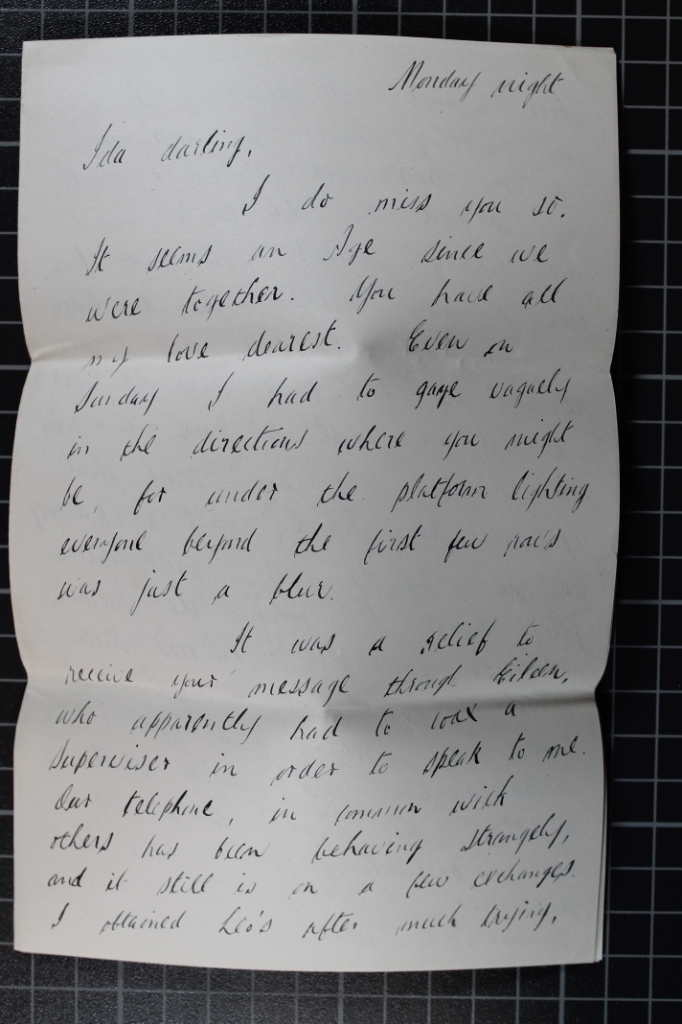 Monday night
Ida darling,
I do miss you so.
It seems an Age since we
were together. You have all
my love dearest. Even on
Sunday I had to gaze vaguely
in the directions where you might
be, for under the platform lighting
everyone beyond the first few rows
was just a blur.
It was a relief to
receive your message through Eileen,
who apparently had to coax a
Superviser in order to speak to me.
Our telephone, in common with
others has been behaving strangely,
and it still is on a few exchanges.
I obtained Leo's after much trying,